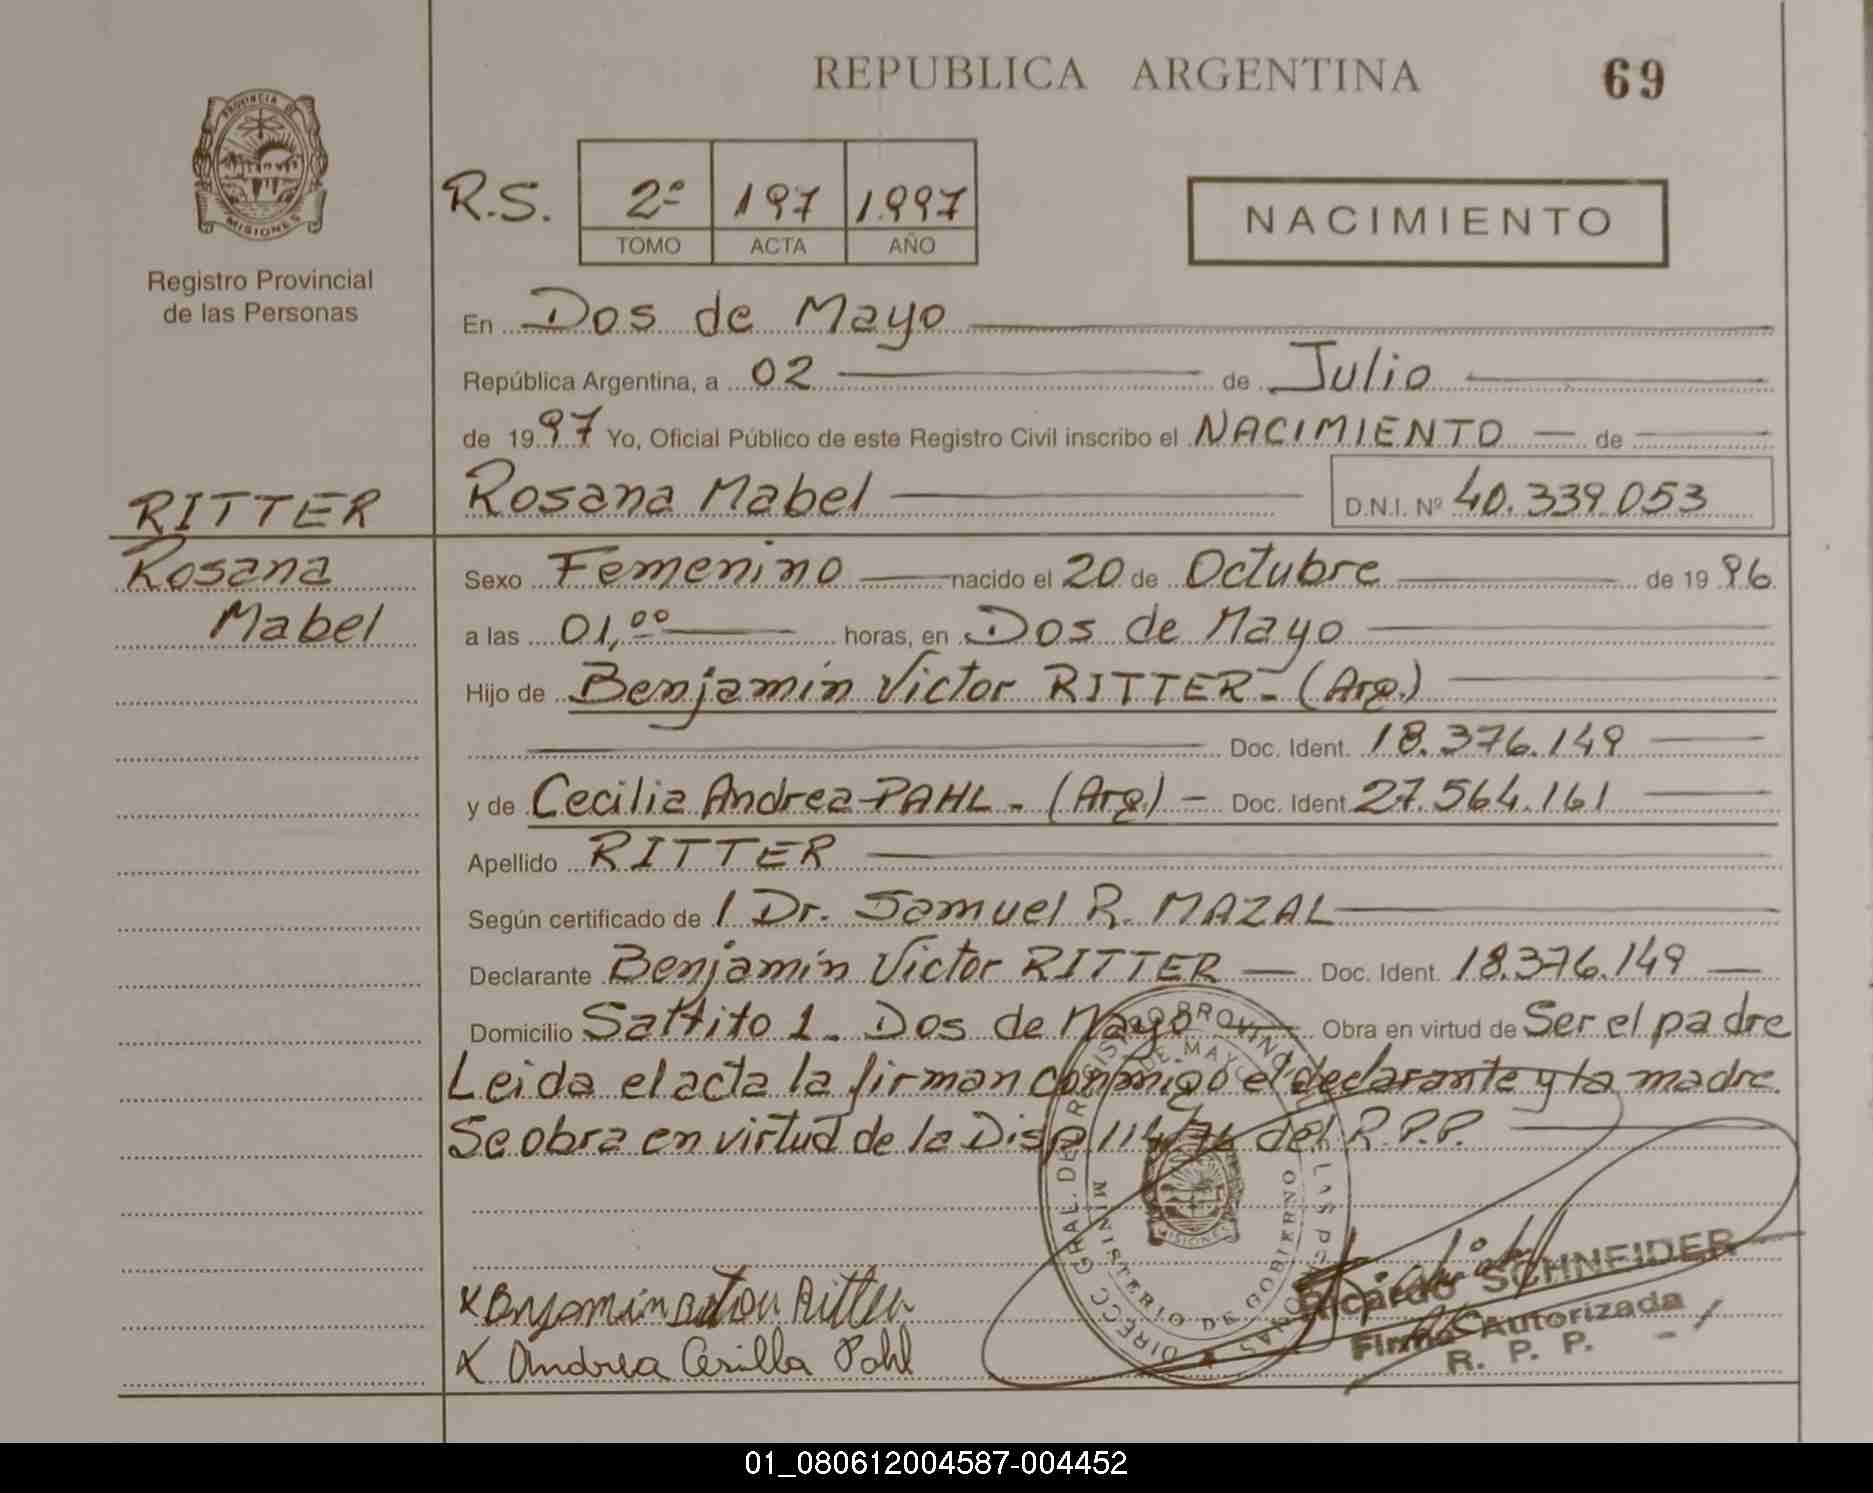 REPUBLICA ARGENTINA
69
PROVINCIA DE
MISIONES
Registro Provincial
de las Personas
R.S.
2º 197 1.997
TOMO ACTA AÑO
NACIMIENTO
En Dos de Mayo
República Argentina, a 02 de Julio
de 1997 Yo, Oficial Público de este Registro Civil inscribo el NACIMIENTO de
Rosana Mabel D.N.I. Nº 40.339.053
RITTER
Rosana
Mabel
Sexo Femenino nacido el 20 de Octubre de 1996
a las 01,00 horas, en Dos de Mayo
Hijo de Benjamín Victor RITTER - (Arg.)
Doc. Ident. 18.376.149
y de Cecilia Andrea PAHL - (Arg.) - Doc. Ident. 27.564.161
Apellido RITTER
Según certificado de / Dr. Samuel R. MAZAL
Declarante Benjamín Victor RITTER Doc. Ident. 18.376.149
Domicilio Saltito 1 - Dos de Mayo Obra en virtud de Ser el padre
Leida el acta la firman conmigo el declarante y la madre.
Se obra en virtud de la Disp 114/76 del R.P.P.
DIRECC GRAL. DE REGISTRO PROVINCIAL DE LAS PERSONAS
DE MAYO
MINISTERIO DE GOBIERNO
MISIONES
x Benjamin Victor Ritter
x Andrea Cecilia Pahl
Ricardo SCHNEIDER
Firma Autorizada
R. P. P.
01_080612004587-004452